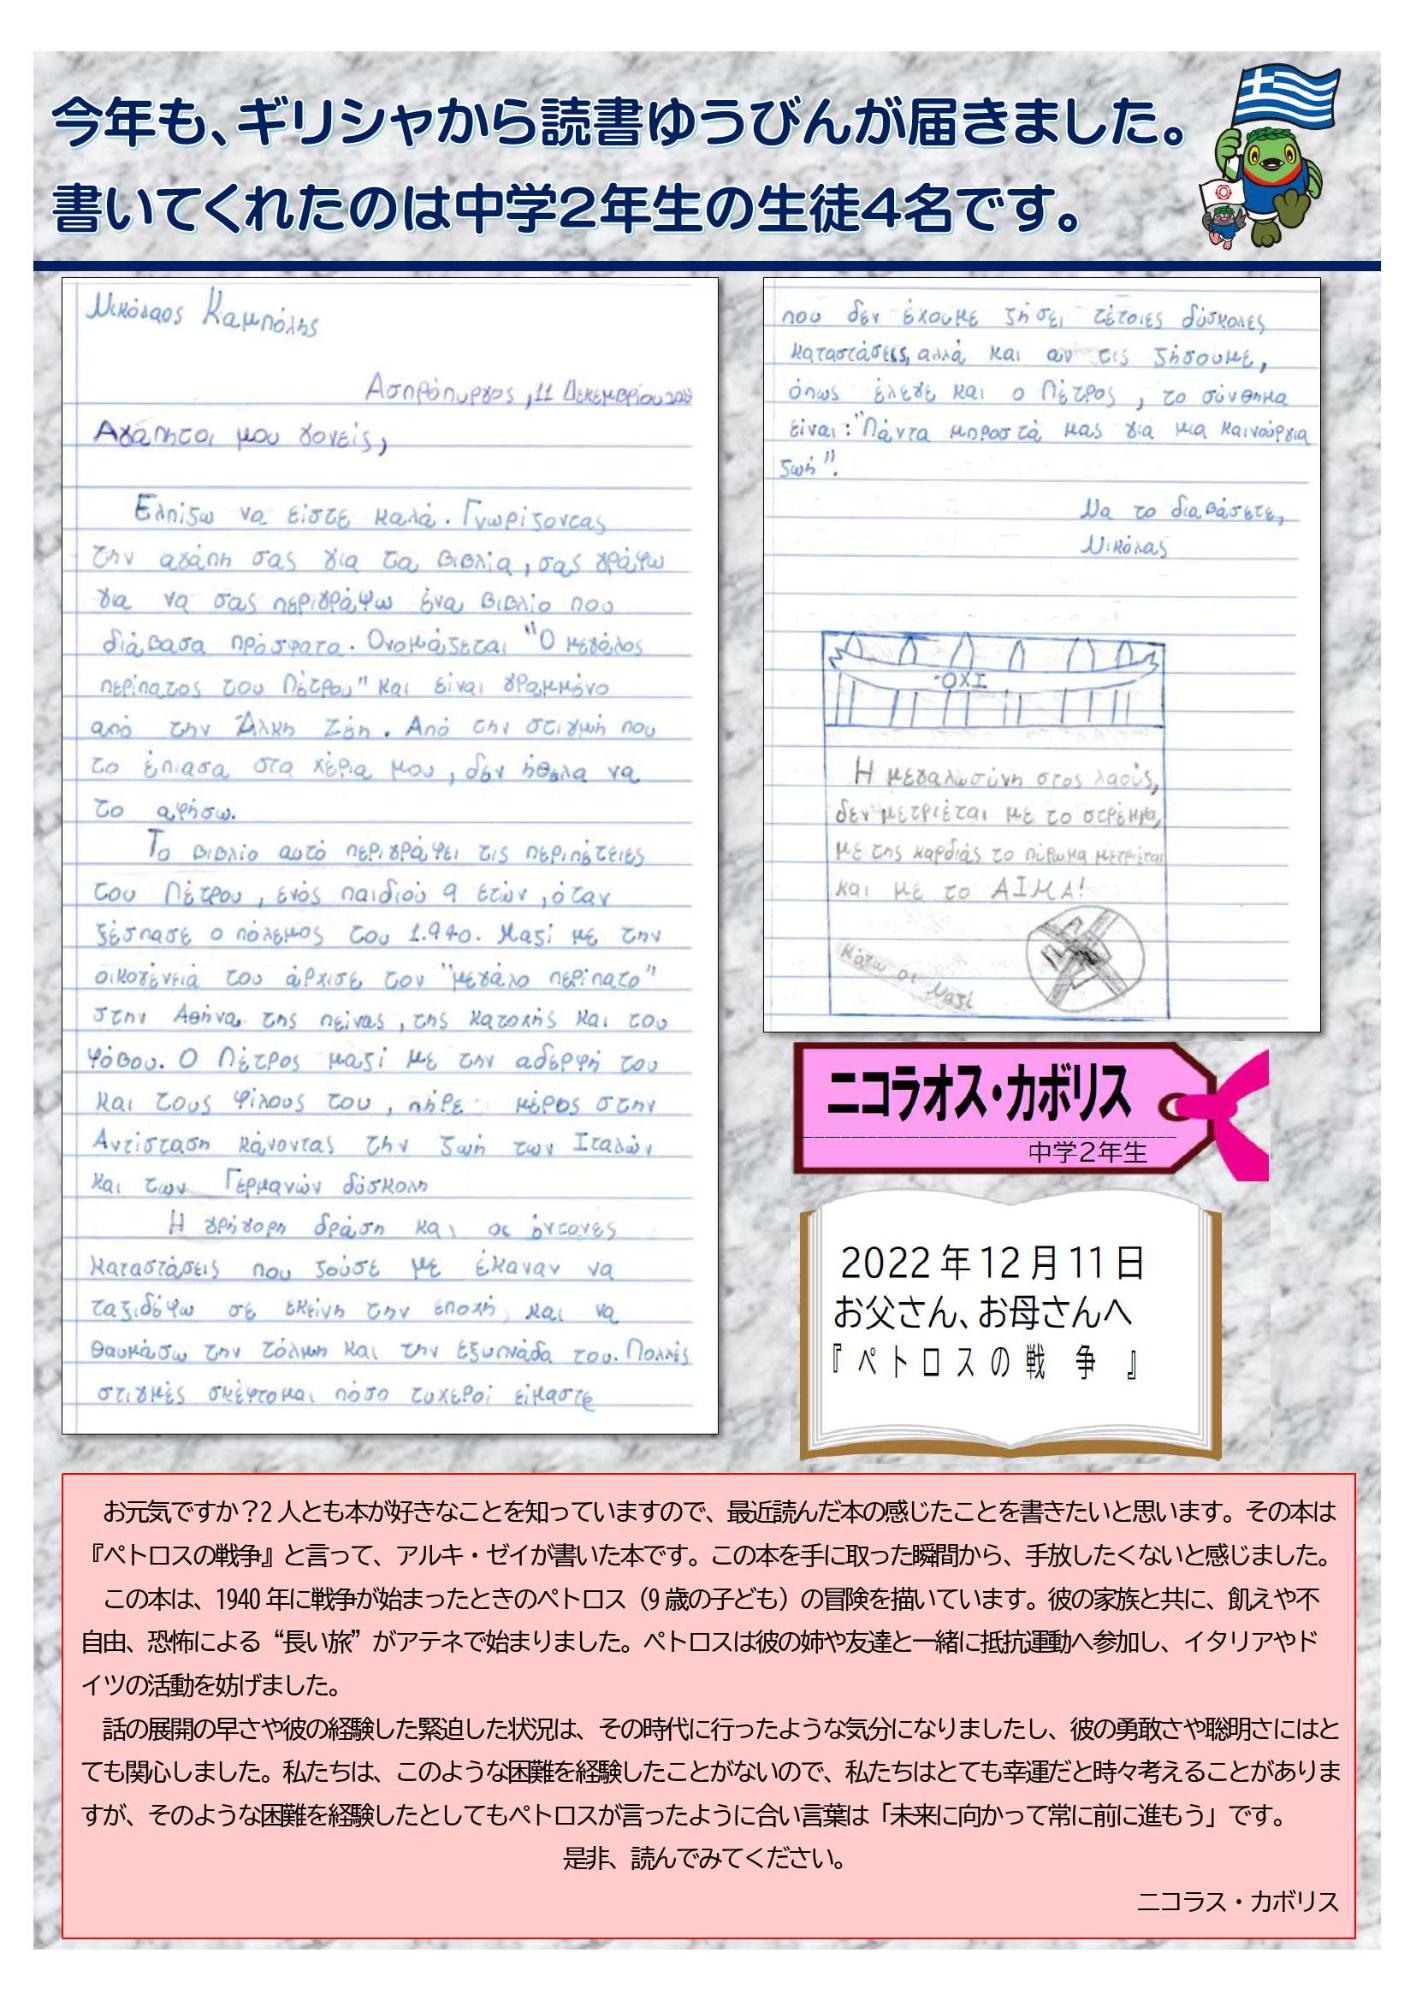 今年も、ギリシャから読書ゆうびんが届きました。
書いてくれたのは中学2年生の生徒4名です。
Νικόλαος Καμπόλης
Ασπρόπυργος, 11 Δεκεμβρίου
Αγάπητοι μου γονείς,
Ελπίζω να είστε καλά. Γνωρίζοντας
την αγάπη σας για τα βιβλία, σας γράφω
για να σας περιγράψω ένα βιβλίο που
διάβασα πρόσφατα. Ονομάζεται "Ο μεγάλος
περίπατος του Πέτρου" και είναι γραμμένο
από την Άλκη Ζέη. Από την στιγμή που
το έπιασα στα χέρια μου, δεν ήθελα να
το αφήσω.
Το βιβλίο αυτό περιγράφει τις περιπέτειες
του Πέτρου, ενός παιδιού 9 ετών, όταν
ξέσπασε ο πόλεμος του 1.940. Μαζί με την
οικογένειά του άρχισε τον "μεγάλο περίπατο"
στην Αθήνα της πείνας, της κατοχής και του
φόβου. Ο Πέτρος μαζί με την αδερφή του
και τους φίλους του, πήρε μέρος στην
Αντίσταση κάνοντας την ζωή των Ιταλών
και των Γερμανών δύσκολη
Η γρήγορη δράση και οι έντονες
καταστάσεις που ζούσε με έκαναν να
ταξιδέψω σε εκείνη την εποχή, και να
θαυμάσω την τόλμη και την εξυπνάδα του. Πολλές
στιγμές σκέφτομαι πόσο τυχεροί είμαστε
που δεν έχουμε ζήσει τέτοιες δύσκολες
καταστάσεις, αλλά και αν τις ζήσουμε,
όπως έλεγε και ο Πέτρος, το σύνθημα
είναι: "Πάντα μπροστά μας για μια καινούργια
ζωή".
Να το διαβάσετε,
Νικόλας
ΌΧΙ
Η μεγαλωσύνη στος λαούς,
δεν μετριέται με το στρέμμα,
με της καρδιάς το πύρωμα μετριέται
και με το ΑΙΜΑ!
Κάτω οι Ναζί
ニコラオス・カボリス
中学2年生
2022年12月11日
お父さん、お母さんへ
『ペトロスの戦 争 』
お元気ですか？2人とも本が好きなことを知っていますので、最近読んだ本の感じたことを書きたいと思います。その本は
『ペトロスの戦争』と言って、アルキ・ゼイが書いた本です。この本を手に取った瞬間から、手放したくないと感じました。
この本は、1940年に戦争が始まったときのペトロス（9歳の子ども）の冒険を描いています。彼の家族と共に、飢えや不
自由、恐怖による“長い旅”がアテネで始まりました。ペトロスは彼の姉や友達と一緒に抵抗運動へ参加し、イタリアやド
イツの活動を妨げました。
話の展開の早さや彼の経験した緊迫した状況は、その時代に行ったような気分になりましたし、彼の勇敢さや聡明さにはと
ても関心しました。私たちは、このような困難を経験したことがないので、私たちはとても幸運だと時々考えることがありま
すが、そのような困難を経験したとしてもペトロスが言ったように合い言葉は「未来に向かって常に前に進もう」です。
是非、読んでみてください。
ニコラス・カボリス